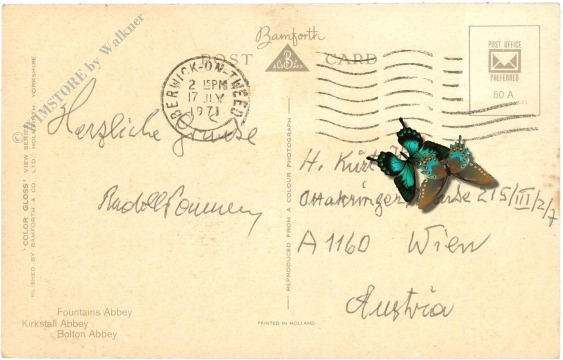 © WIMSTORE by Walkner
Bamforth
POST CARD
B
BERWICK-ON-TWEED
2 15PM
17 JLY
1971
POST OFFICE
PREFERRED
50 A
Herzliche Grüsse
H. Kurt
215/III/2/7
A 1160 Wien
Austria
'COLOR GLOSS' VIEW SERIES
PUBLISHED BY BAMFORTH & CO. LTD., HOLMFIRTH, YORKSHIRE
REPRODUCED FROM A COLOUR PHOTOGRAPH
Fountains Abbey
Kirkstall Abbey
Bolton Abbey
PRINTED IN HOLLAND